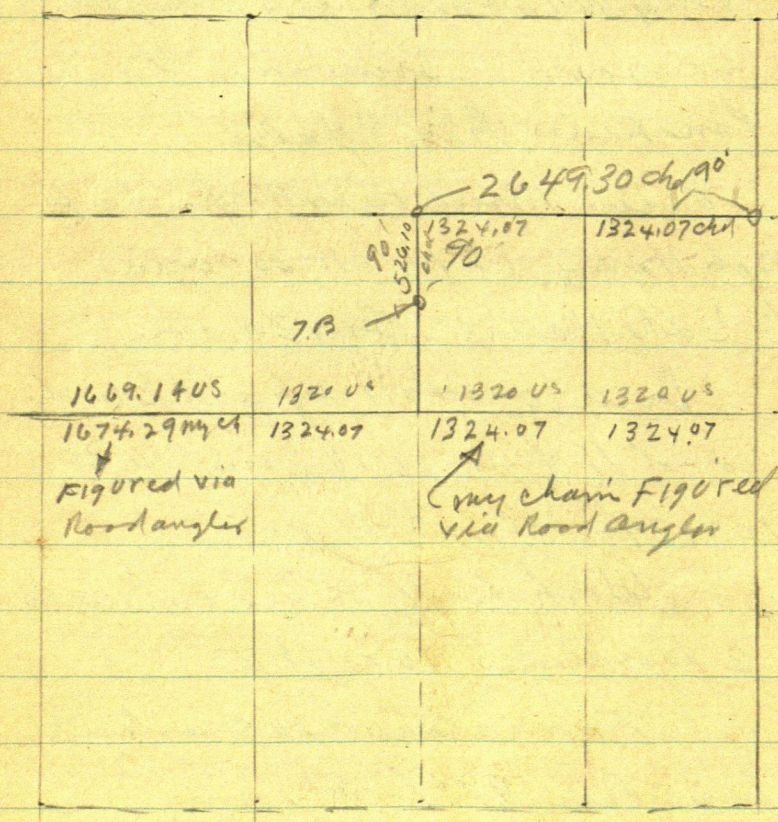 2649.30 chd 90°
1324.07
1324.07 chd
90
526.10
chd
90
7.B
1669.14 US
1320 US
1320 US
1320 US
1674.29 my ch
1324.07
1324.07
1324.07
Figured via
Road angles
my chain Figured
via Road angles